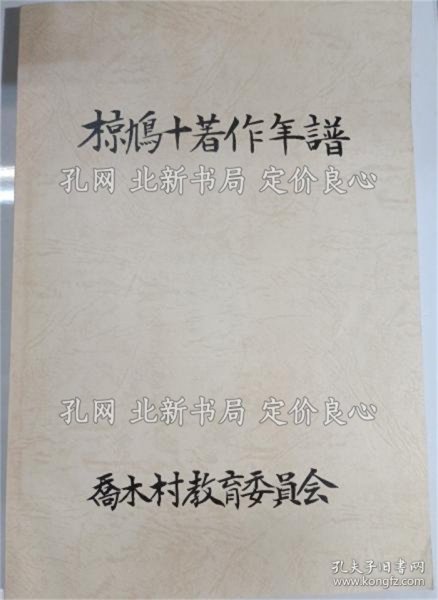 椋鳩十著作年譜
孔网 北新书局 定价良心
孔网 北新书局 定价良心
喬木村教育委員会
孔夫子旧书网
www.kongfz.com